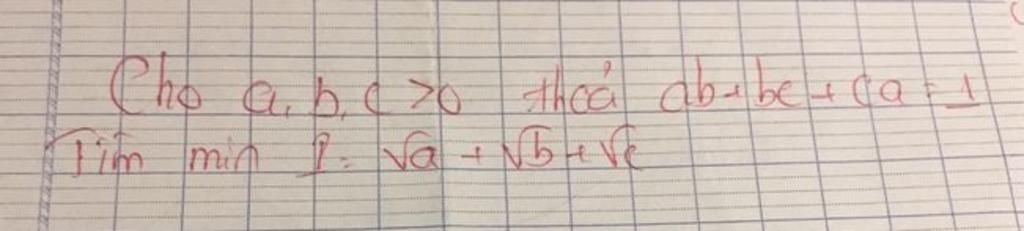 Cho a, b, c >0 thoả ab+bc+ca=1
Tìm min P= √a + √b+√c